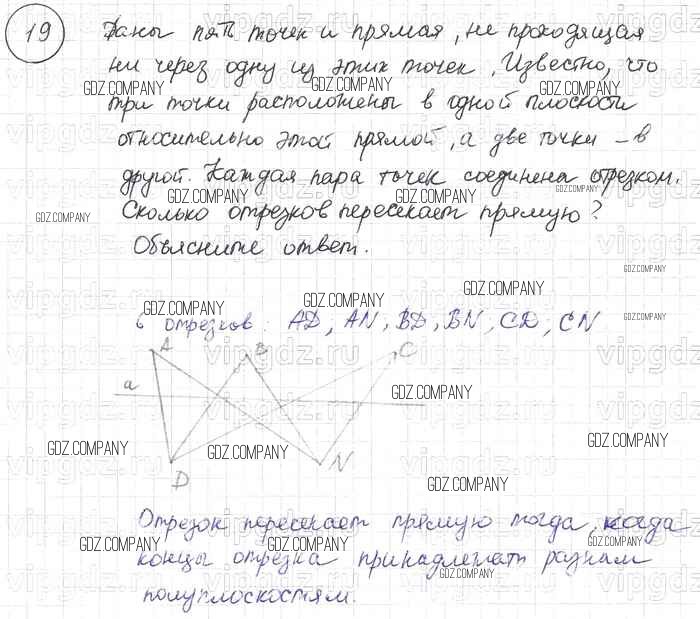 19 Даны пять точек и прямая, не проходящая
ни через одну из этих точек. Известно, что
три точки расположены в одной плоскости
относительно этой прямой, а две точки – в
другой. Каждая пара точек соединена отрезком.
Сколько отрезков пересекает прямую?
Объясните ответ.
6 отрезков: AD, AN, BD, BN, CD, CN
A B C
a
D N
Отрезок пересекает прямую тогда, когда
концы отрезка принадлежат разным
полуплоскостям.